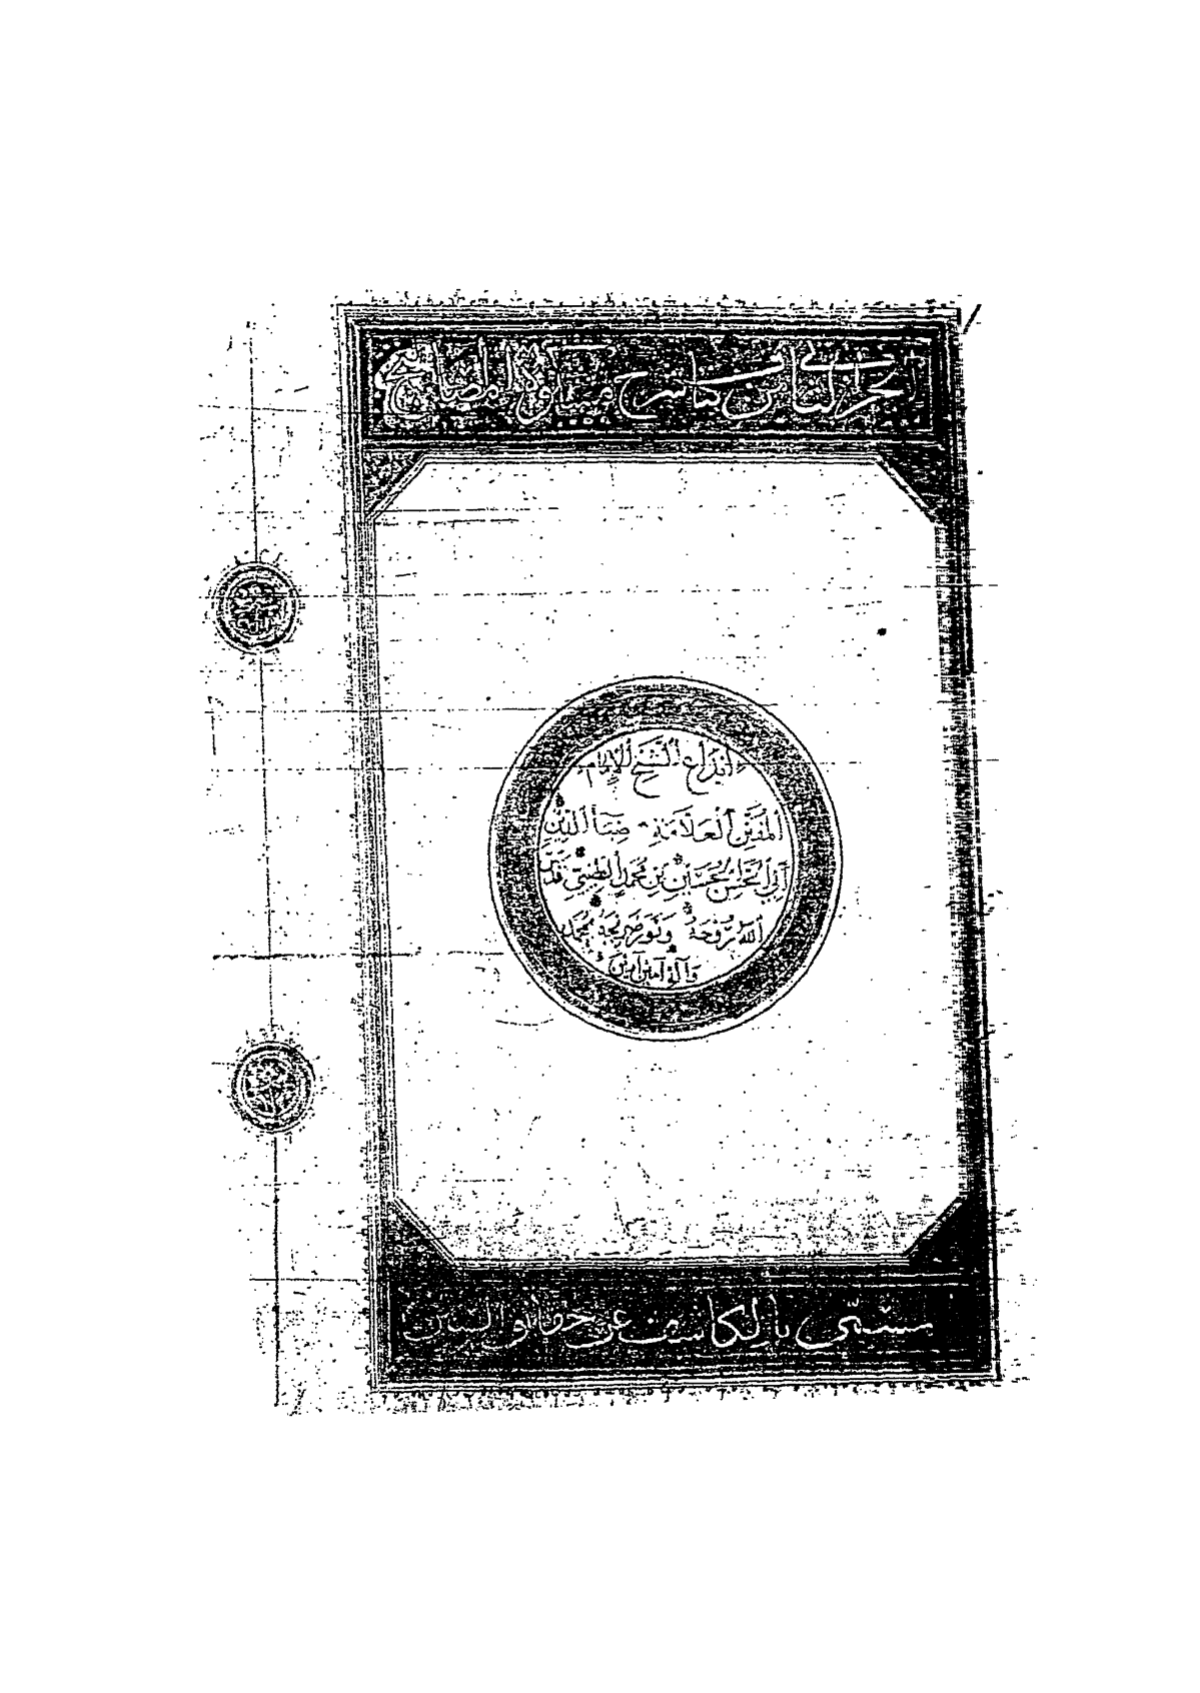 الجزء الثاني من كتاب شرح مشكاة المصابيح
ابداع الشيخ الإمام
المفسر العلامة ضياء الدين
أبي الحسن حسين بن محمد الطيبي قدس
الله روحه ونور ضريحه بمحمد
وآله آمين آمين
مسمى بالكاشف عن حقائق السنن